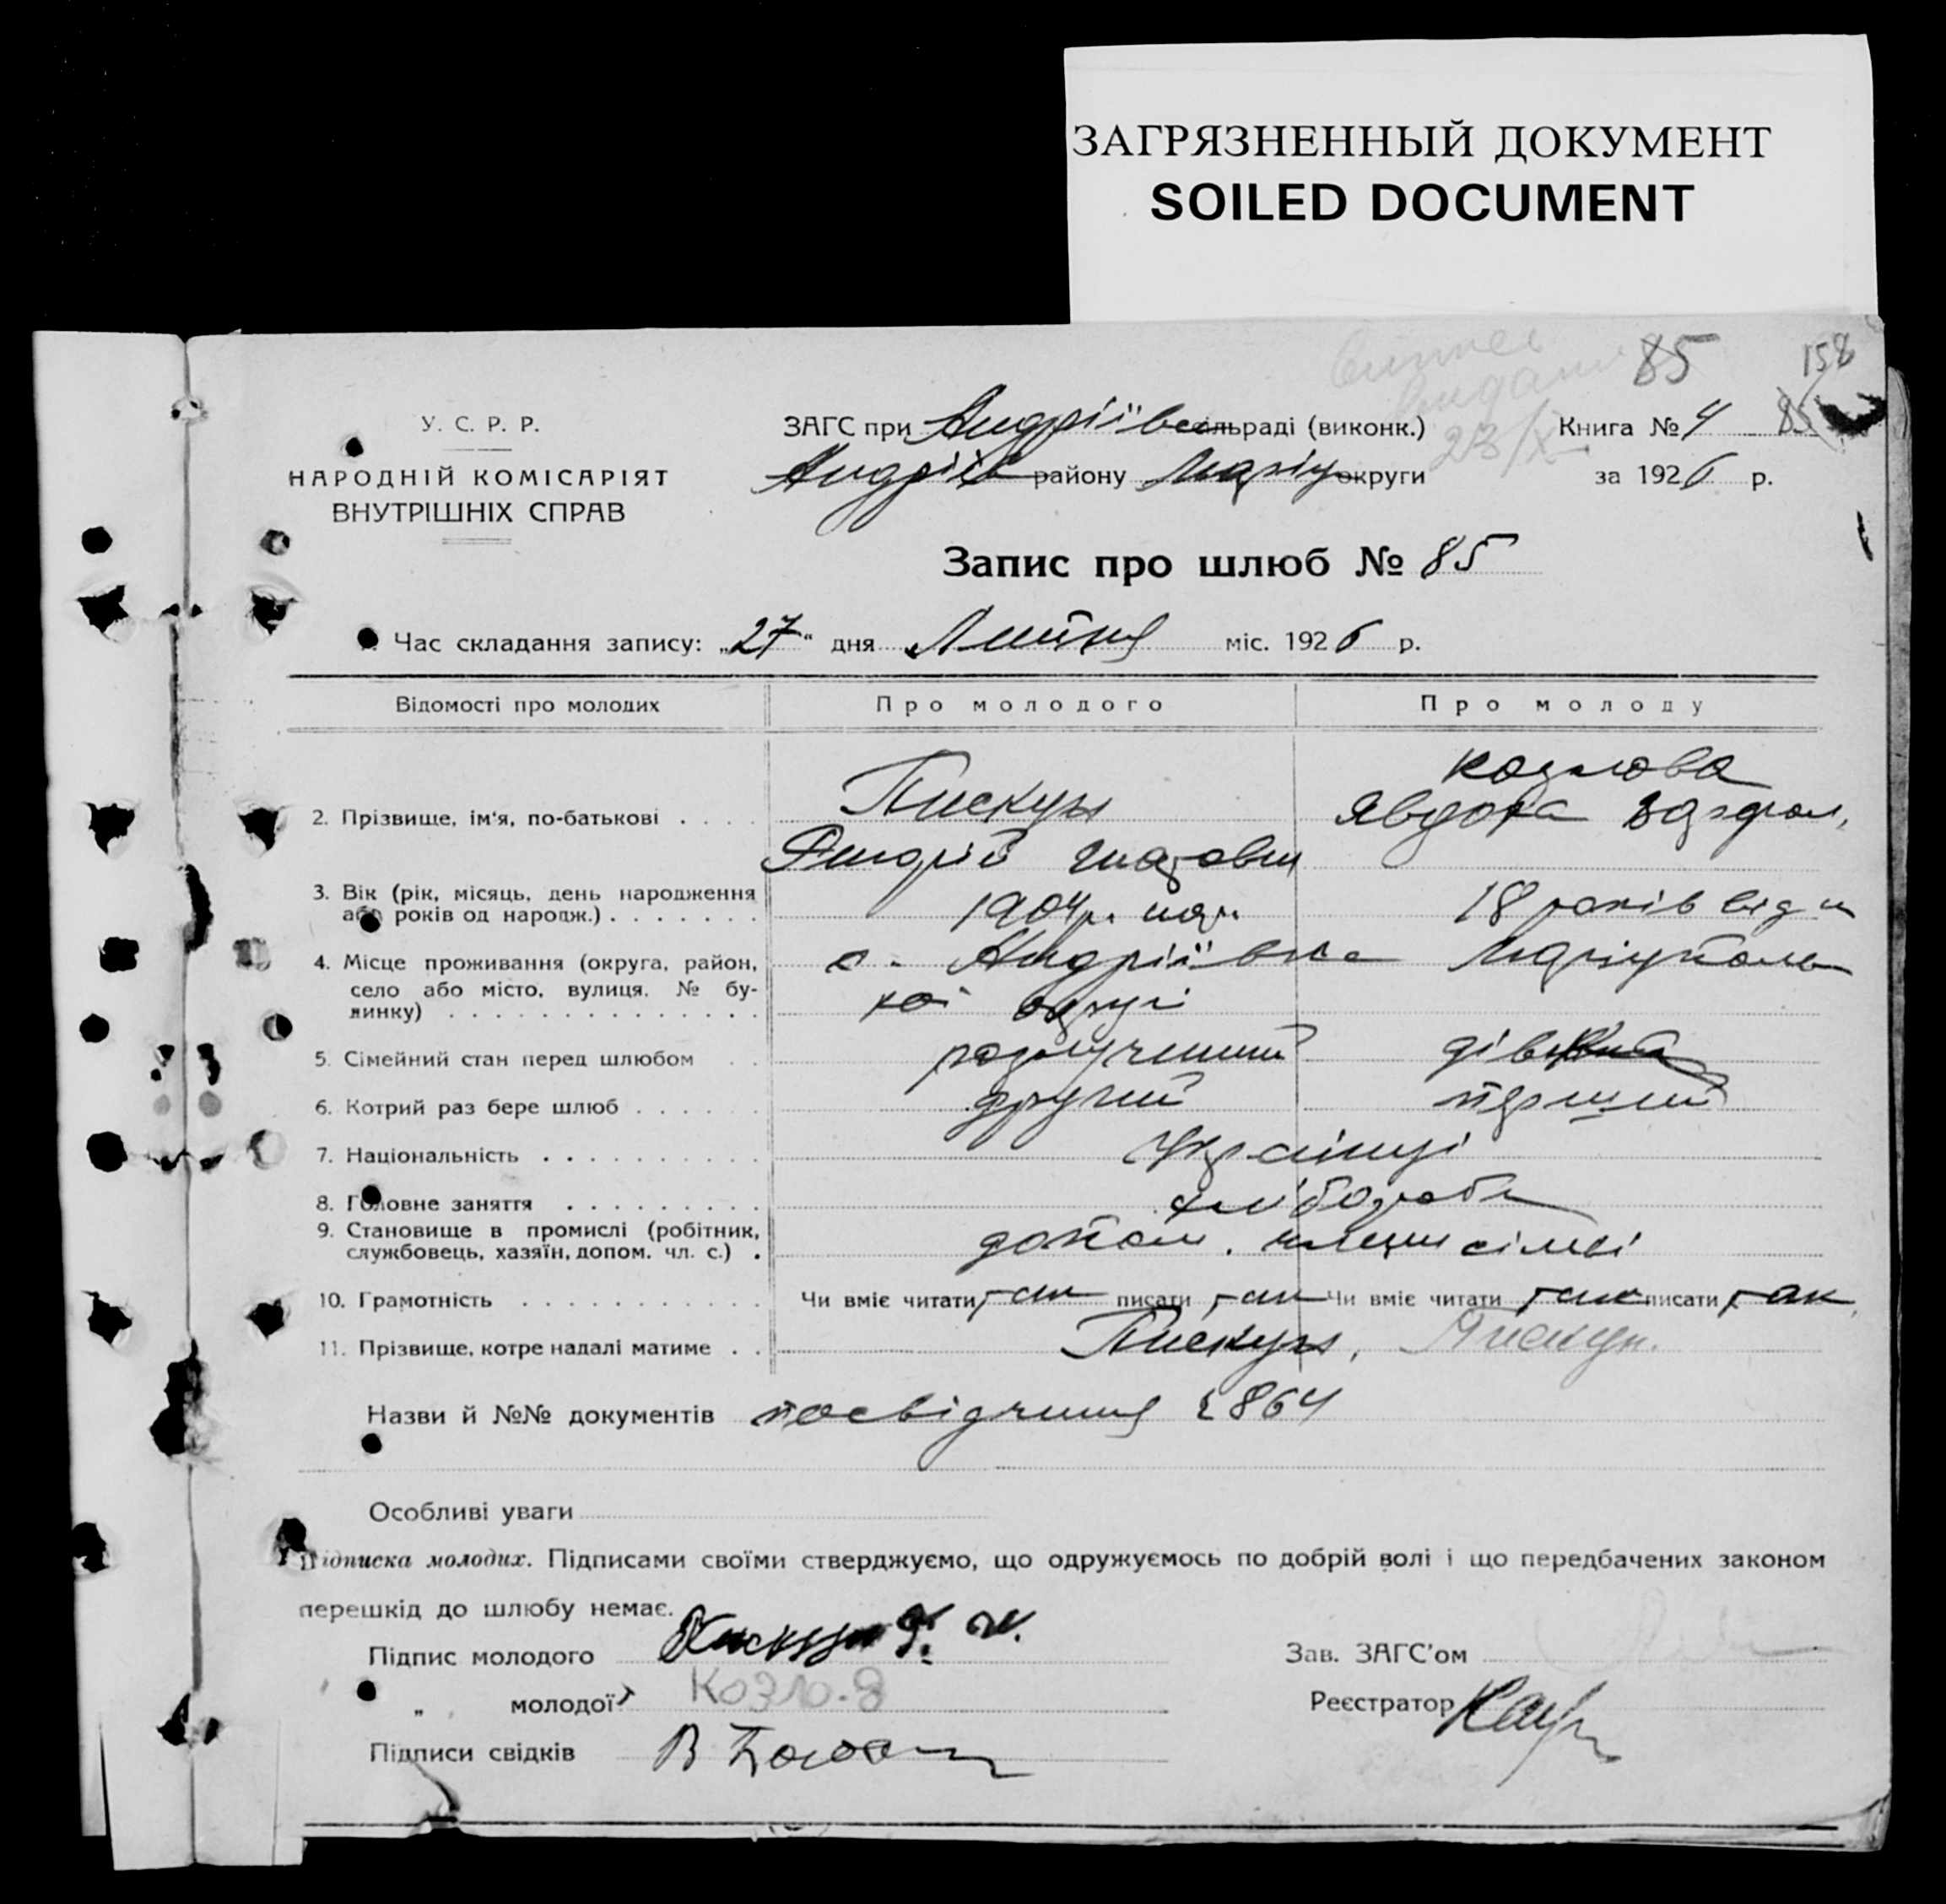 ЗАГРЯЗНЕННЫЙ ДОКУМЕНТ
SOILED DOCUMENT
85 158
У. С. Р. Р.
НАРОДНІЙ КОМІСАРІЯТ
ВНУТРІШНІХ СПРАВ
ЗАГС при Андріївсельраді (виконк.) 23/X Книга № 4 85
Андріїв району Маріуп округи за 1926 р.
Запис про шлюб № 85
Час складання запису: „27“ дня Липня міс. 1926 р.
Відомості про молодих Про молодого Про молоду
2. Прізвище, ім'я, по-батькові . . . . Пискун Козлова
Андрій Явдоха
3. Вік (рік, місяць, день народження
або років од народж.) . . . . . . . 1904р. нар. 18 років від н
4. Місце проживання (округа, район,
село або місто, вулиця, № бу-
динку) . . . . . . . . . . . . . с. Андріївка Маріупольс
кої округі
5. Сімейний стан перед шлюбом . . розлучений
6. Котрий раз бере шлюб . . . . . . другий перший
7. Національність . . . . . . . . . . Українці
8. Головне заняття . . . . . . . . . хлібороби
9. Становище в промислі (робітник,
службовець, хазяїн, допом. чл. с.) . допом. члени сімьї
10. Грамотність . . . . . . . . . . . Чи вміє читати так писати так Чи вміє читати так писати так
11. Прізвище, котре надалі матиме . . Пискун, Пискун.
Назви й №№ документів посвідчення 2864
Особливі уваги
Підписка молодих. Підписами своїми стверджуємо, що одружуємось по добрій волі і що передбачених законом
перешкід до шлюбу немає.
Підпис молодого Пискун Зав. ЗАГС'ом
„ молодої Козло.в Реєстратор
Підписи свідків В